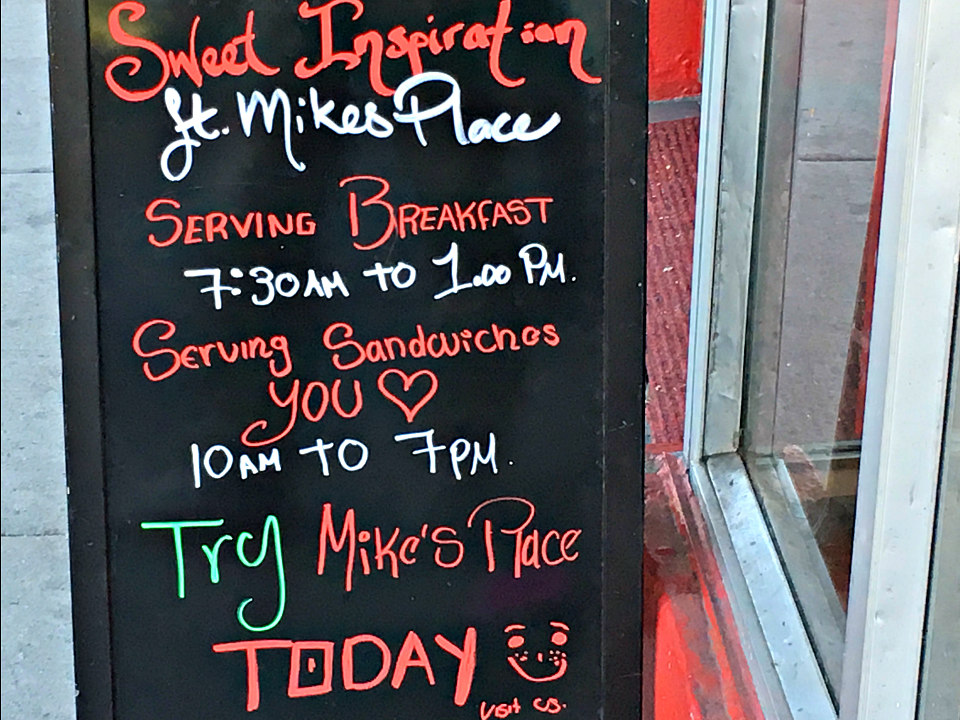 Sweet Inspiration
ft. Mikes Place
SERVING BREAKFAST
7:30AM TO 1.00 PM.
Serving Sandwiches
YOU
10AM TO 7PM.
Try Mike's Place
TODAY
visit us.